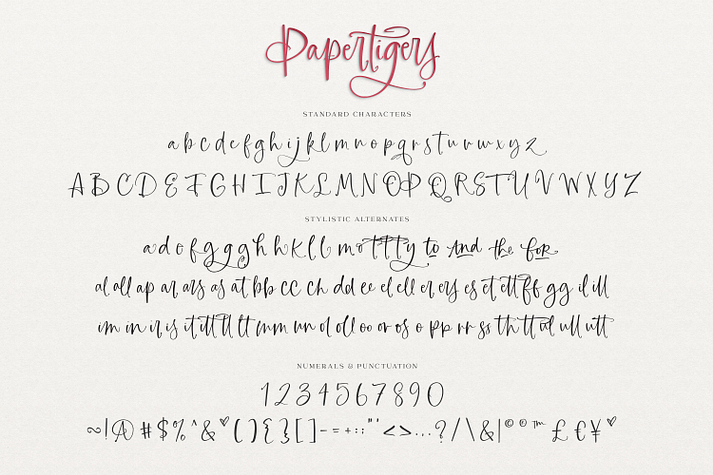 Papertigers
STANDARD CHARACTERS
a b c d e f g h i j k l m n o p q r s t u v w x y z
A B C D E F G H I J K L M N O P Q R S T U V W X Y Z
STYLISTIC ALTERNATES
a d o f g g g h h k l l m o t t t t y to and the for
al all ap ar ars as at bb cc ch dd ee el ell er ery es et ett ff gg il ill
im in ir is it itt ll lt mm un ol oll oo or os o pp rr ss th tt ul ull utt
NUMERALS & PUNCTUATION
1 2 3 4 5 6 7 8 9 0
~ ! @ # $ % ^ & ♡ ( ) { } [ ] - = + : ; " ' < > . . . ? / \ & | © ® ™ £ € ¥ ♡